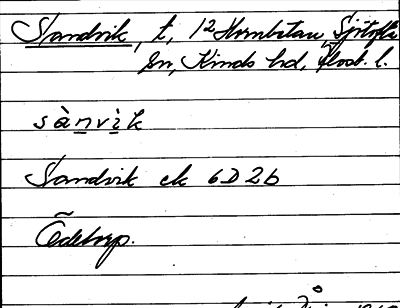 Sandvik, t, 1² Hornbetan, Sjötofta
sn, Kinds hd, Älvsb. l.
sànvìk
Sandvik ek 6D2b
Ödetorp.